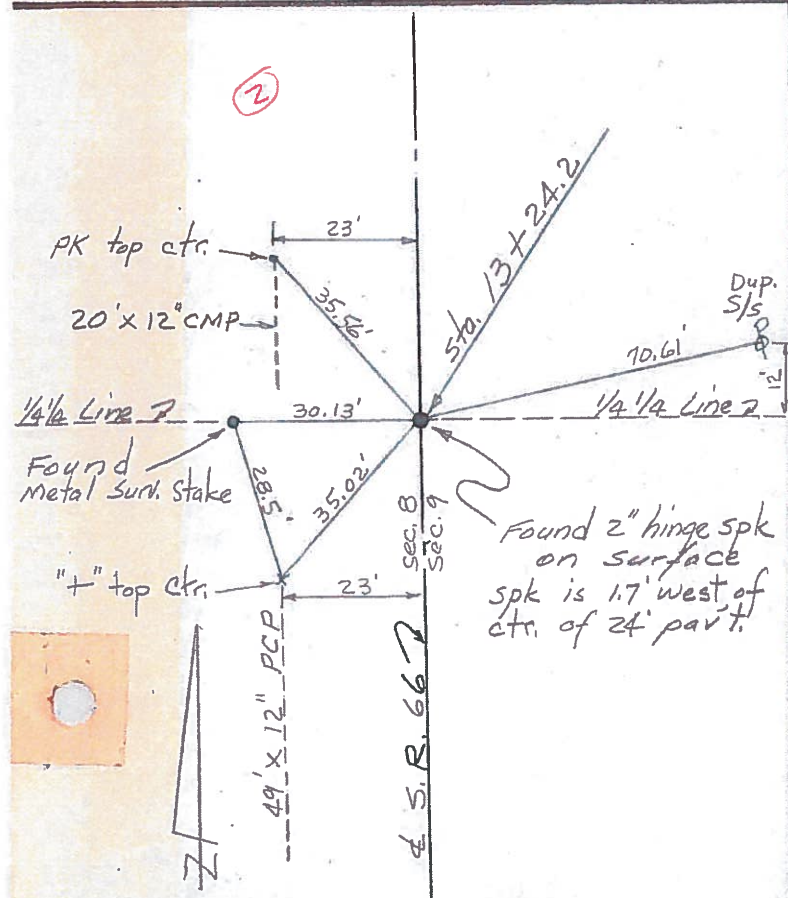 2
23'
PK top ctr.
35.56'
20' x 12" CMP
Sta. 13 + 24.2
Dup.
S/S
70.61'
12'
1/4 1/4 Line
30.13'
1/4 1/4 Line
Found
Metal Surv. Stake
28.5'
35.02'
Sec. 8
Sec. 9
Found 2" hinge spk
on surface
spk is 1.7' west of
ctr. of 24' pav't.
"+" top ctr.
23'
49' x 12" PCP
℄ S.R. 66
N